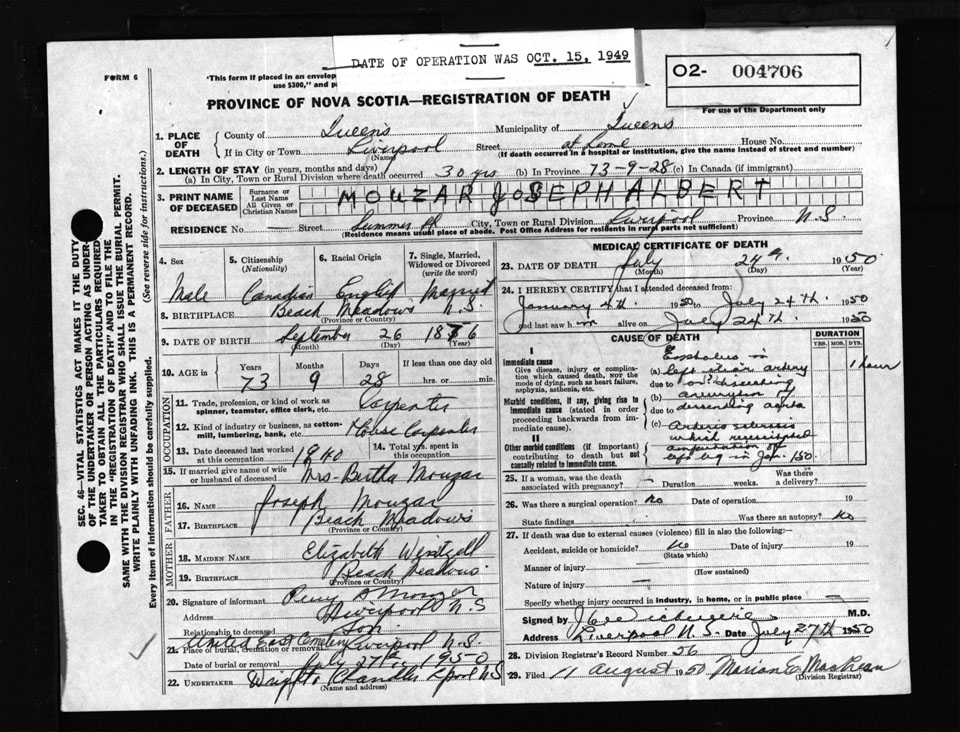 DATE OF OPERATION WAS OCT. 15, 1949
FORM 6
"This form if placed in an envelop
use $300," and p
02- 004706
For use of the Department only
PROVINCE OF NOVA SCOTIA—REGISTRATION OF DEATH
SEC. 46—VITAL STATISTICS ACT MAKES IT THE DUTY
OF THE UNDERTAKER OR PERSON ACTING AS UNDER-
TAKER TO OBTAIN ALL THE PARTICULARS REQUIRED
IN THE "REGISTRATION OF DEATH" AND TO FILE THE
SAME WITH THE DIVISION REGISTRAR WHO SHALL ISSUE THE BURIAL PERMIT.
WRITE PLAINLY WITH UNFADING INK. THIS IS A PERMANENT RECORD.
Every item of information should be carefully supplied. (See reverse side for instructions.)
1. PLACE OF DEATH
County of Queens Municipality of Queens
If in City or Town Liverpool Street at Home House No.
(Name) (If death occurred in a hospital or institution, give the name instead of street and number)
2. LENGTH OF STAY (in years, months and days)
(a) In City, Town or Rural Division where death occurred 30 yrs (b) In Province 73-9-28 (c) In Canada (if immigrant)
3. PRINT NAME OF DECEASED
Surname or Last Name
All Given or Christian Names
MOUZAR JOSEPH ALBERT
RESIDENCE No. — Street City, Town or Rural Division Liverpool Province N.S.
(Residence means usual place of abode. Post Office Address for residents in rural parts not sufficient)
4. Sex Male
5. Citizenship (Nationality) Canadian
6. Racial Origin English
7. Single, Married, Widowed or Divorced (write the word) Married
8. BIRTHPLACE Beach Meadows N.S.
(Province or Country)
9. DATE OF BIRTH September 26 1876
(Month) (Day) (Year)
10. AGE in Years 73 Months 9 Days 28 If less than one day old hrs. or min.
OCCUPATION
11. Trade, profession, or kind of work as spinner, teamster, office clerk, etc. Carpenter
12. Kind of industry or business, as cotton-mill, lumbering, bank, etc. House Carpenter
13. Date deceased last worked at this occupation 1940
14. Total yrs. spent in this occupation.
15. If married give name of wife or husband of deceased Mrs. Bertha Mouzar
FATHER
16. NAME Joseph Mouzar
17. BIRTHPLACE Beach Meadows
(Province or Country)
MOTHER
18. MAIDEN NAME Elizabeth
19. BIRTHPLACE Beach Meadows
(Province or Country)
20. Signature of informant Percy A Mouzar
Address Liverpool N.S
Relationship to deceased Son
21. Place of burial, cremation or removal Liverpool N.S.
Date of burial or removal July 27th, 1950
22. UNDERTAKER Chandler L'pool N.S
(Name and address)
MEDICAL CERTIFICATE OF DEATH
23. DATE OF DEATH July 24th. 1950
(Month) (Day) (Year)
24. I HEREBY CERTIFY that I attended deceased from:
January 4th. 1950 to July 24th. 1950
and last saw him alive on July 24th. 1950
CAUSE OF DEATH
DURATION
YRS. MOS. DYS.
I
Immediate cause
Give disease, injury or complication which caused death, not the mode of dying, such as heart failure, asphyxia, asthenia, etc.
(a) Embolus in left iliac artery 1 hour
due to
Morbid conditions, if any, giving rise to immediate cause (stated in order proceeding backwards from immediate cause).
(b) aneurysm of
due to descending aorta
(c) Arterio sclerosis
II
Other morbid conditions (if important) contributing to death but not causally related to immediate cause.
which necessitated
amputation of
left leg in Jan. '50.
25. If a woman, was the death associated with pregnancy? — Duration weeks. Was there a delivery?
26. Was there a surgical operation? No Date of operation 19
State findings Was there an autopsy? No
27. If death was due to external causes (violence) fill in also the following:
Accident, suicide or homicide? No Date of injury 19
(State which)
Manner of injury —
(How sustained)
Nature of injury —
Specify whether injury occurred in industry, in home, or in public place —
Signed by M.D.
Address Liverpool N.S. Date July 27th 1950
28. Division Registrar's Record Number 56
29. Filed 11 August 1950 Marion C. MacLean
(Division Registrar)